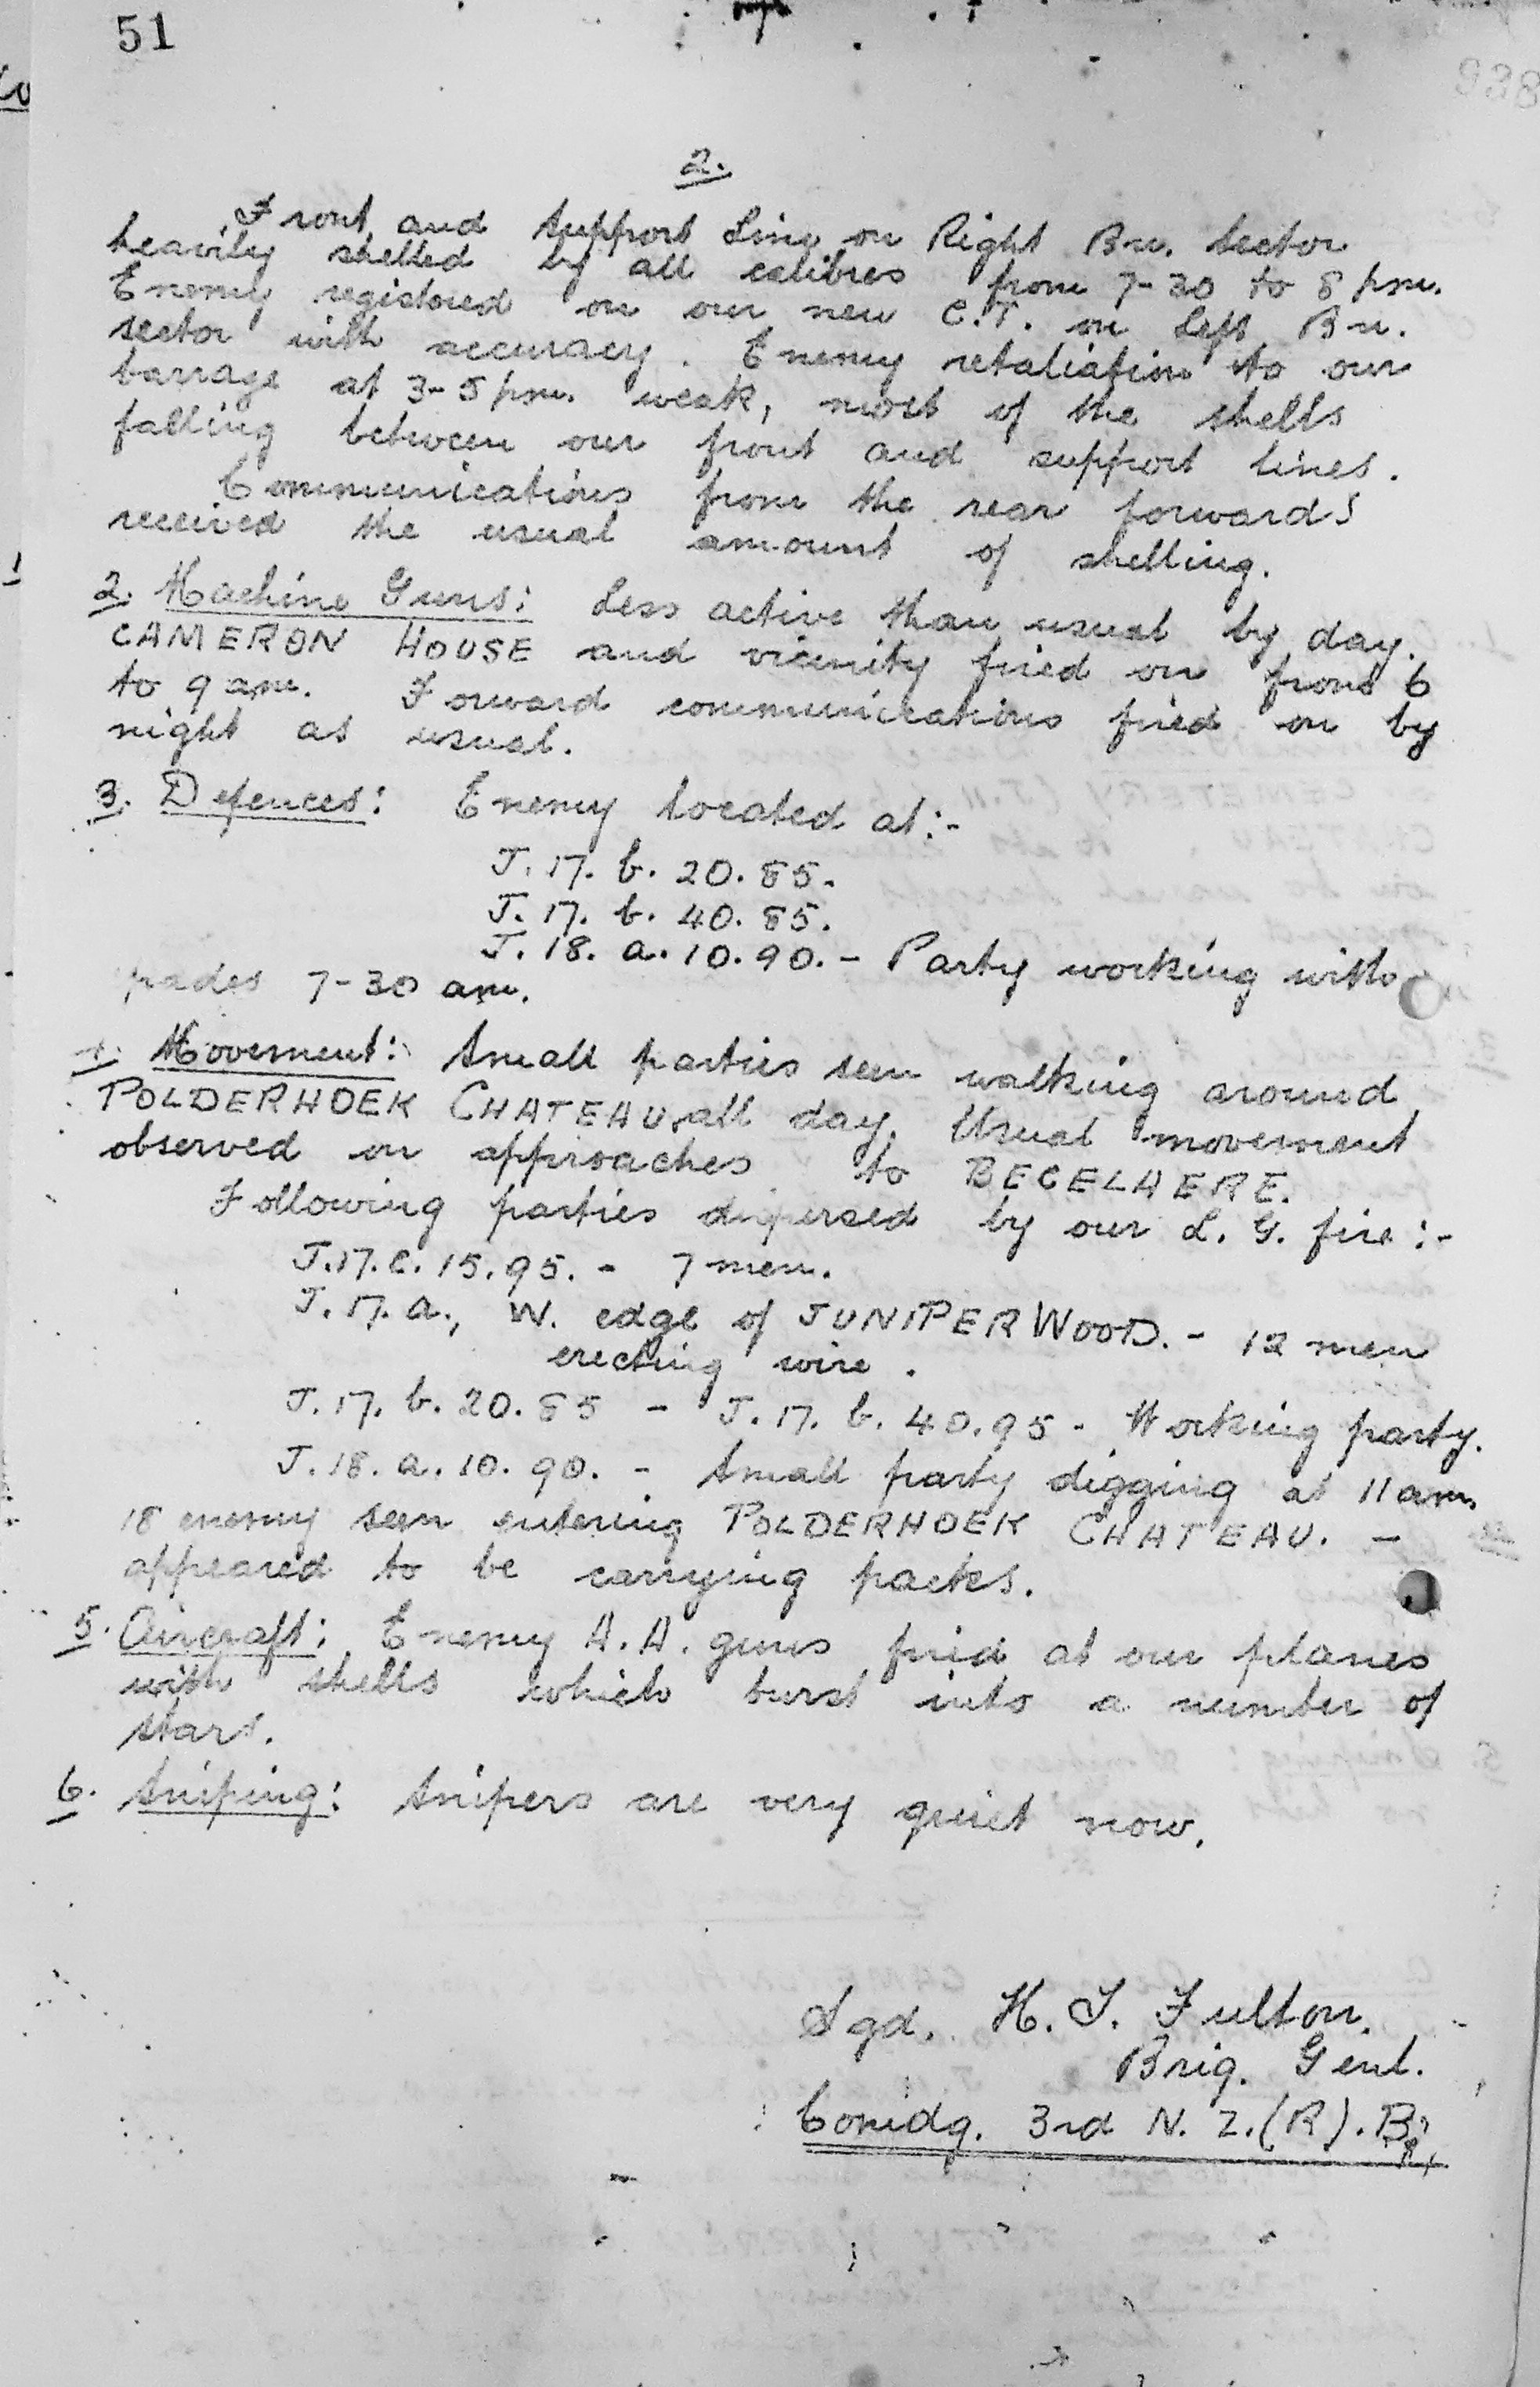 51
2.
Front and Support Line on Right Bn. Sector
heavily shelled by all calibres from 7-30 to 8 pm.
Enemy registered on our new C.T. on Left Bn.
sector with accuracy. Enemy retaliation to our
barrage at 3-5 pm. weak, most of the shells
falling between our front and support lines.
Communications from the rear forwards
received the usual amount of shelling.
2. Machine Guns: Less active than usual by day.
CAMERON HOUSE and vicinity fired on from 6
to 9 am. Forward communications fired on by
night as usual.
3. Defences: Enemy located at:-
J.17.b.20.85.
J.17.b.40.85.
J.18.a.10.90.- Party working with
pades 7-30 am.
Movement: Small parties seen walking around
POLDERHOEK CHATEAU, all day. Usual movement
observed on approaches to BECELAERE.
Following parties dispersed by our L.G. fire:-
J.17.c.15.95.- 7 men.
J.17.a., W. edge of JUNIPER WOOD.- 12 men
erecting wire.
J.17.b.20.85 - J.17.b.40.95- Working party.
J.18.a.10.90.- Small party digging at 11am.
18 enemy seen entering POLDERHOEK CHATEAU. -
appeared to be carrying packs.
5. Aircraft: Enemy A.A. guns fired at our planes
with shells which burst into a number of
stars.
6. Sniping: Snipers are very quiet now.
Sgd. H. T. Fulton.
Brig. Genl.
Comdg. 3rd N.Z.(R).B.